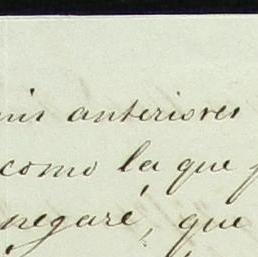 mis anteriores
como la que
negaré, que